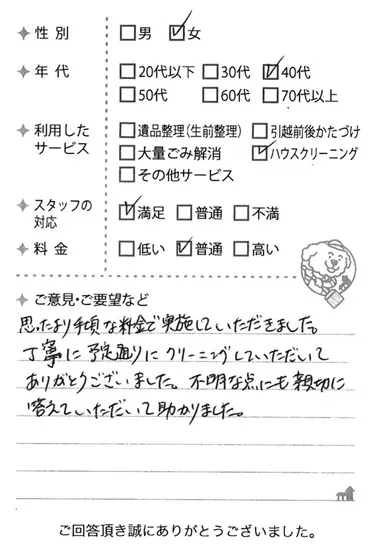 ✦ 性別 □男 ☑女
✦ 年代 □20代以下 □30代 ☑40代
□50代 □60代 □70代以上
✦ 利用したサービス □遺品整理(生前整理) □引越前後かたづけ
□大量ごみ解消 ☑ハウスクリーニング
□その他サービス
✦ スタッフの対応 ☑満足 □普通 □不満
✦ 料金 □低い ☑普通 □高い
✦ ご意見・ご要望など
思ったより手頃な料金で実施していただきました。
丁寧に予定通りにクリーニングしていただいて
ありがとうございました。不明な点にも親切に
答えていただいて助かりました。
ご回答頂き誠にありがとうございました。